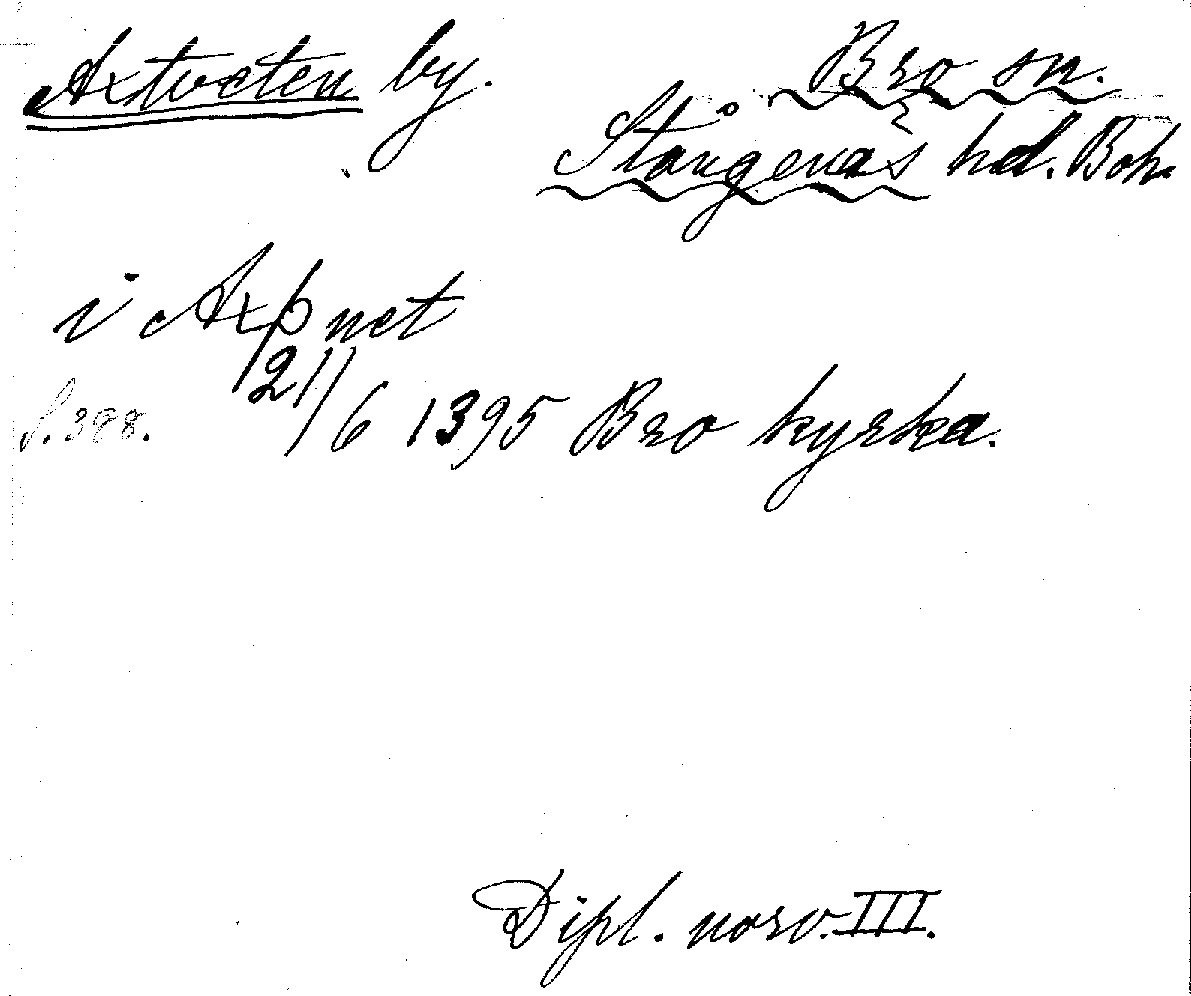 Axtveten by. Bro sn.
Stångenäs hd. Boh.
i Axþuet
S. 398. 21/6 1395 Bro kyrka.
Dipl. norv. III.